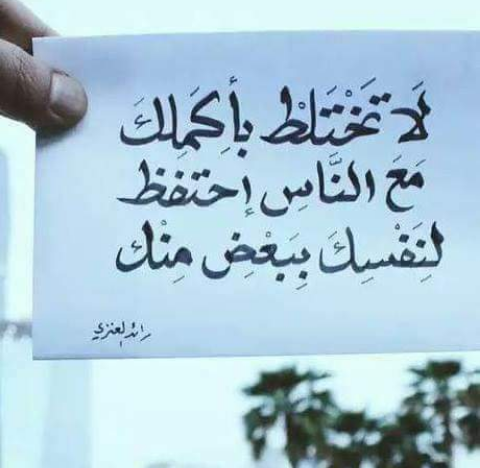 لَا تَخْتَلِطْ بِأَكمَلِكَ
مَعَ النَّاسِ إحتفظ
لِنَفْسِكَ بِبَعْضٍ مِنْك
رائد العنزي